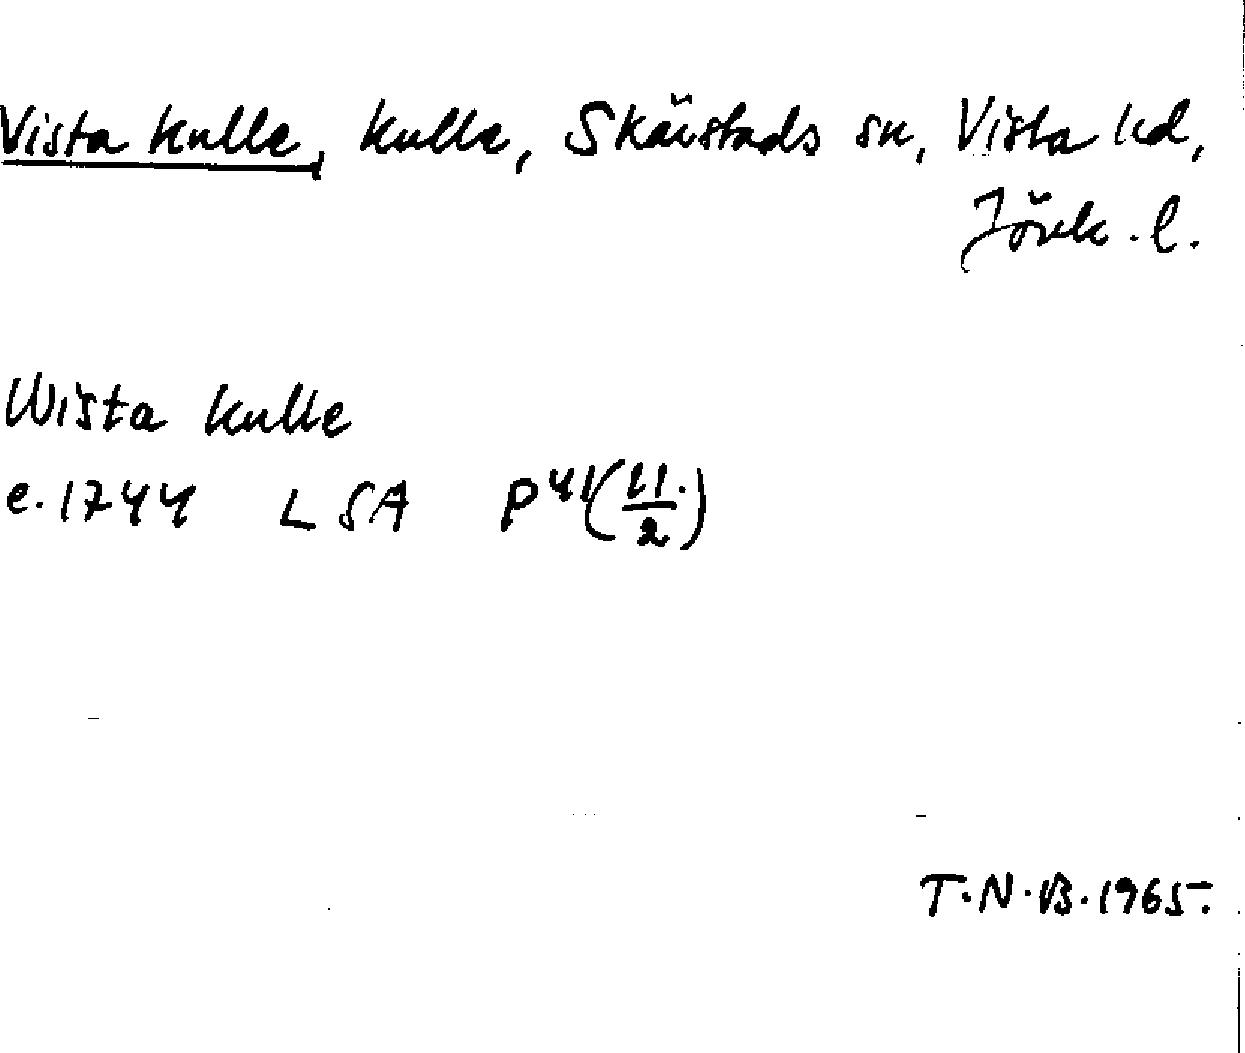 Vista kulle, kulle, Skärstads sn, Vista hd,
Jönk. l.
Wista kulle
c. 1744 LSA P 41 (11./2)
T.N.B. 1965.